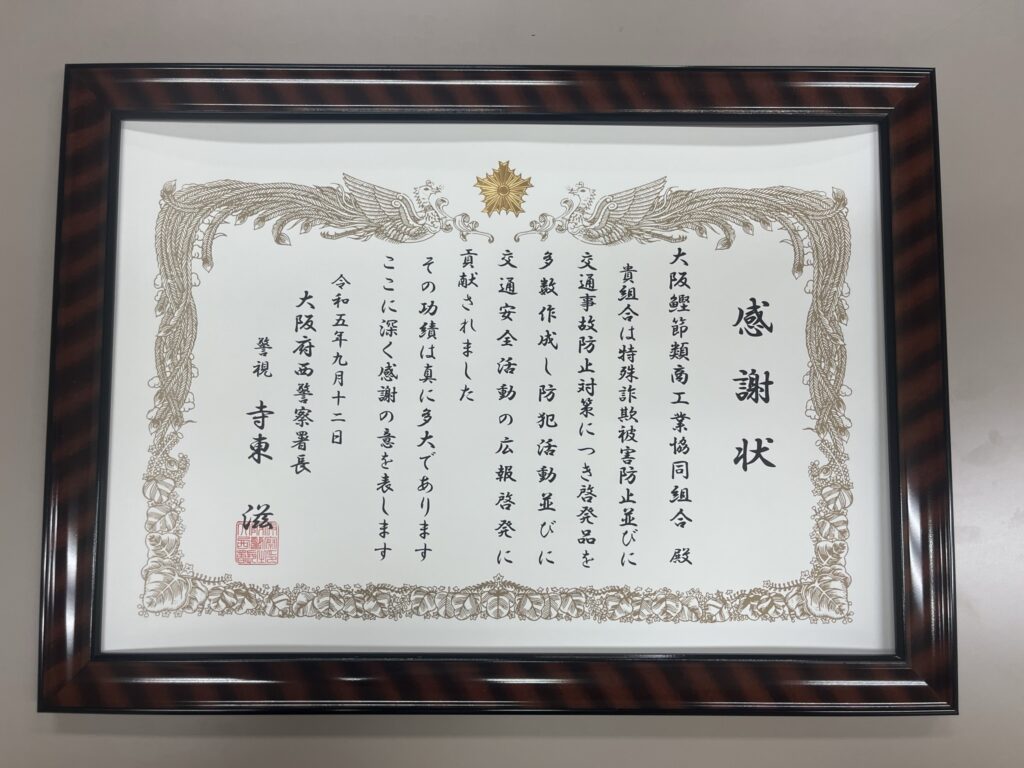 感謝状
大阪鰹節類商工業協同組合 殿
貴組合は特殊詐欺被害防止並びに
交通事故防止対策につき啓発品を
多数作成し防犯活動並びに
交通安全活動の広報啓発に
貢献されました
その功績は真に多大であります
ここに深く感謝の意を表します
令和五年九月十二日
大阪府西警察署長
警視 寺東 滋